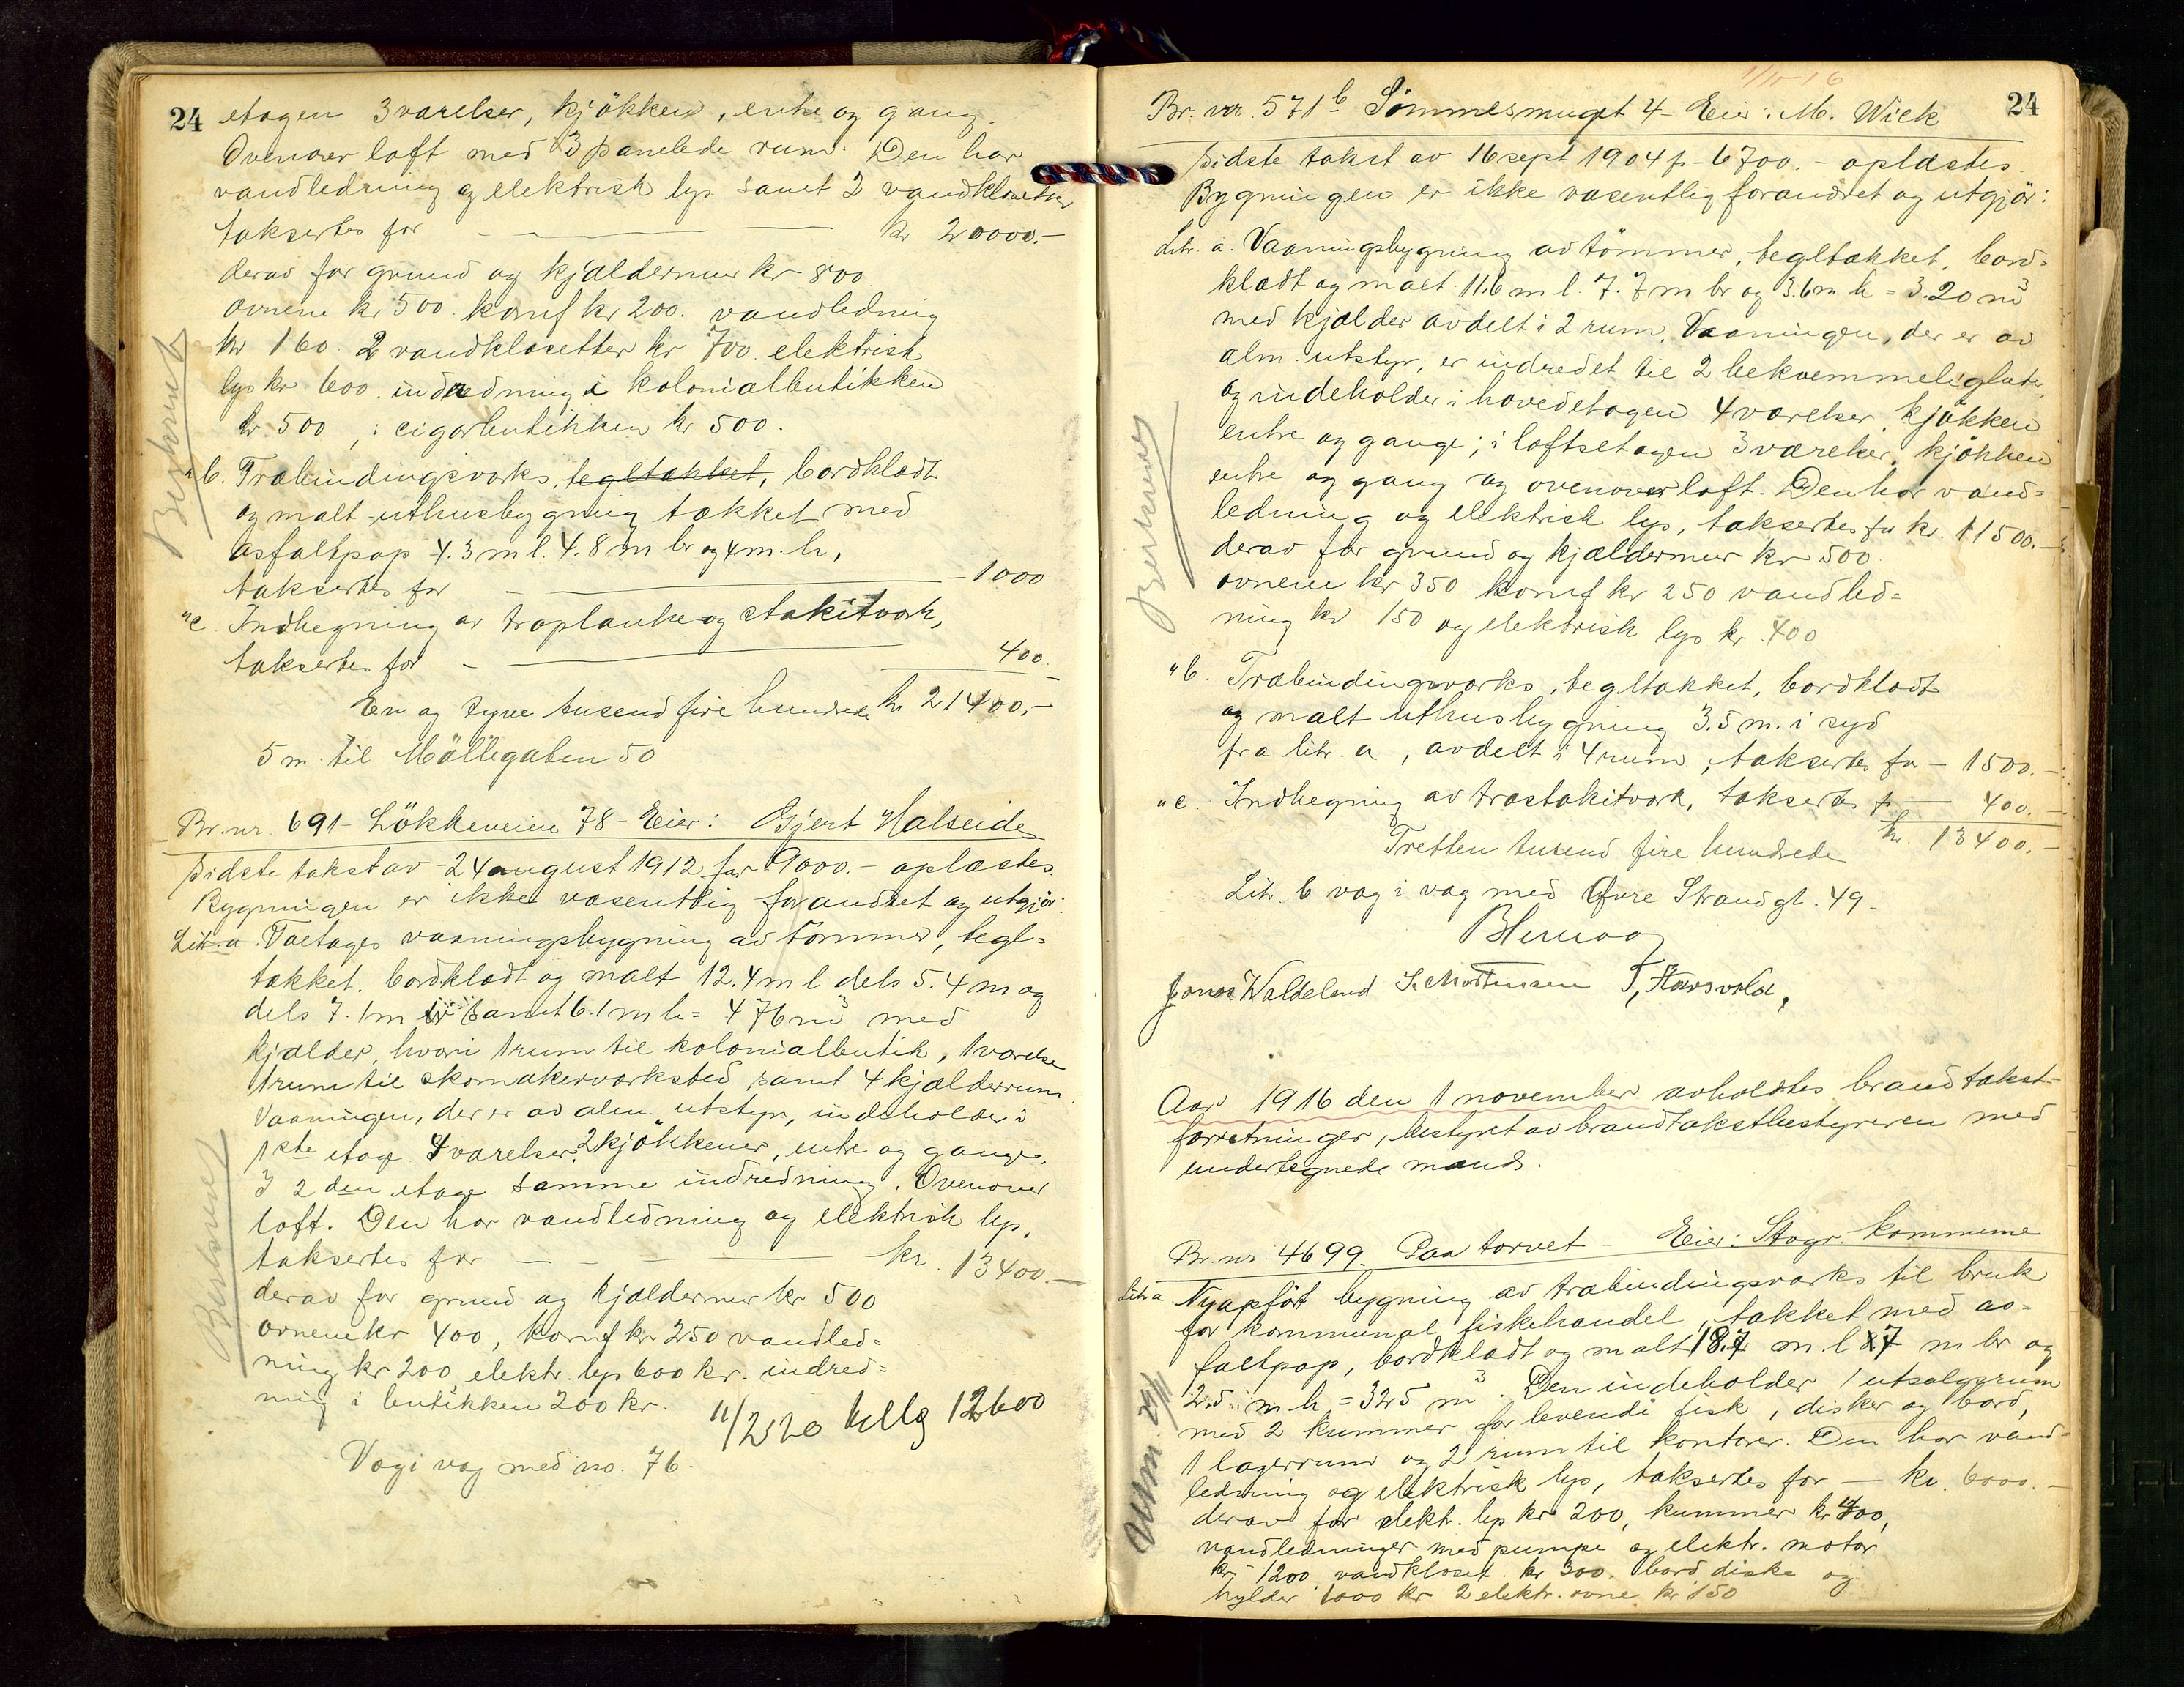 24
etagen 3 værelser, kjøkken, entre og gang.
Ovenover loft med 3 panelede rum. Den har
vandledning og elektrisk lys samt 2 vandklosetter
taksertes for - kr 20000.-
derav for grund og kjældermur kr 800
ovnene kr 500. komf kr 200. vandledning
kr 160. 2 vandklosetter kr 700 elektrisk
lys kr 600. indredning i kolonialbutikken
kr. 500, i cigarbutikken kr 500.
" b. Træbindingsværks, tegltækket, bordklædt
og malt uthusbygning tækket med
asfaltpap 4.3 m l. 4.8 m br og 4 m. h,
taksertes for - 1000
" c. Indhegning av træplanke og stakitværk,
taksertes for - 400.-
En og tyve tusend fire hundrede kr 21400.-
5 m. til Möllegaten 50
Br. nr. 691 - Lökkeveien 78 - Eier: Gjert Halseide
Sidste takst av 24 august 1912 for 9000.- oplæstes.
Bygningen er ikke væsentlig forandret og utgjør:
Litr. a. Toetages vaaningsbygning av tømmer, tegl=
tækket. bordklædt og malt 12.4 m l dels 5.4 m og
dels 7.1 m br samt 6.1 m h = 476 m³ med
kjælder, hvori 1 rum til kolonialbutik, 1 værelse
1 rum til skomakerværksted samt 4 kjælderrum.
Vaaningen, der er av alm. utstyr, indeholder i
1ste etage 4 værelser, 2 kjökkener, entre og gange.
I 2den etage samme indredning. Ovenover
loft. Den har vandledning og elektrisk lys.
taksertes for - kr. 13400.-
derav for grund og kjældermur kr 500
ovnene kr 400, komf kr 250 vandled=
ning kr 200 elektr. lys 600 kr. indred=
ning i butikken 200 kr.
12600
Væg i væg med no. 76.
24
Br. nr. 571 b Sömmesmuget 4 - Eier: M. Wiek
Sidste takst av 16 sept 1904 f. 6700.- oplæstes.
Bygningen er ikke væsentlig forandret og utgjör:
Litr. a. Vaaningsbygning av tömmer, tegltækket, bord=
klædt og malt 11.6 m l. 7.7 m br og 3.6 m h = 320 m³
med kjælder avdelt i 2 rum. Vaaningen, der er av
alm. utstyr, er indredet til 2 bekvemmeligheter
og indeholder i hovedetagen 4 værelser, kjökken
entre og gange; i loftsetagen 3 værelser, kjökken
entre og gang og ovenover loft. Den har vand=
ledning og elektrisk lys, taksertes for kr. 11500.-
derav for grund og kjældermur kr 500.
ovnene kr 350. komf kr 250 vandled=
ning kr 150 og elektrisk lys kr. 400
" b. Træbindingsværks, tegltækket, bordklædt
og malt uthusbygning 3.5 m. i syd
fra litr. a, avdelt i 4 rum, taksertes for - 1500.-
" c. Indhegning av træstakitværk, taksertes f. - 400.-
Tretten tusend fire hundrede kr. 13400.-
Litr. b væg i væg med Øvre Strandgt. 49.
Jonas Waldeland S. Mortensen
Aar 1916 den 1 november avholdtes brandtakst-
forretninger, bestyret av brandtakstbestyreren med
undertegnede mænd.
Br. nr. 4699. Paa torvet - Eier: Stvgr. kommune
Litr. a. Nyopfört bygning av træbindingsværks til bruk
for kommunal fiskehandel, tækket med as-
faltpap, bordklædt og malt 18.7 m. l 7 m br og
2.5 m. h = 325 m³. Den indeholder 1 utsalgsrum
med 2 kummer for levende fisk, disker og bord,
1 lagerrum og 2 rum til kontorer. Den har vand-
ledning og elektrisk lys, taksertes for - kr. 6000.-
derav for elektr. lys kr 200, kummer kr 400,
vandledninger med pumpe og elektr. motor
kr 1200 vandkloset kr 300. bord diske og
hylder 1000 kr 2 elektr. ovne kr 150